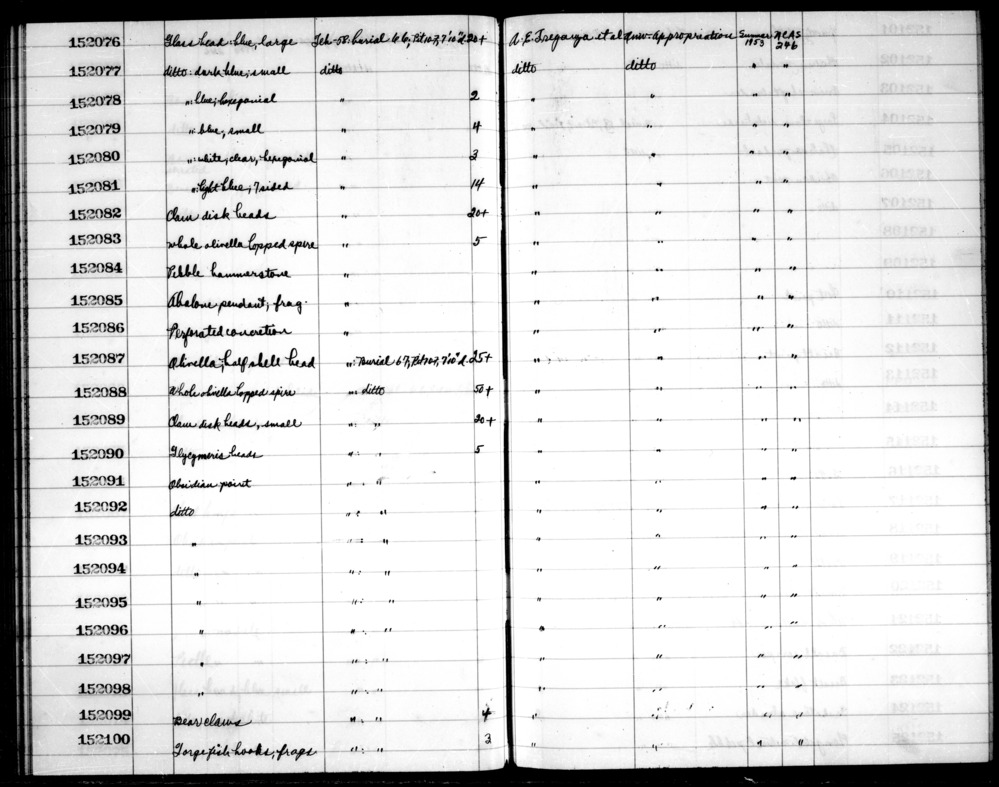 152076 Glass bead blue, large Teh-58: burial 66, Pit 10-7, 7'10"d. 20+ A. E. Treganza et al Univ. Appropriation Summer 1953 UCAS 246
152077 ditto: dark blue; small ditto ditto ditto " "
152078 ": blue; hexagonal " 2 " " " "
152079 ": blue, small " 4 " " " "
152080 ": white; clear; hexagonal " 3 " " " "
152081 ": light blue; 7 sided " 14 " " " "
152082 Clam disk beads " 20+ " " " "
152083 whole olivella lopped spire " 5 " " " "
152084 Pebble hammerstone " " " " "
152085 Abalone pendant; frag. " " " " "
152086 Perforated concretion " " " " "
152087 Olivella; half shell bead ": burial 67, Pit 10-7, 7'10"d. 25+ " " " "
152088 Whole olivella lopped spire ": ditto 50+ " " " "
152089 Clam disk beads, small ": " 20+ " " " "
152090 Glycymeris beads ": " 5 " " " "
152091 Obsidian point ": " " " " "
152092 ditto ": " " " " "
152093 " ": " " " " "
152094 " ": " " " " "
152095 " ": " " " " "
152096 " ": " " " " "
152097 " ": " " " " "
152098 " ": " " " " "
152099 Bear claws ": " 4 " " " "
152100 Gorge fish hooks, frags ": " 3 " " " "